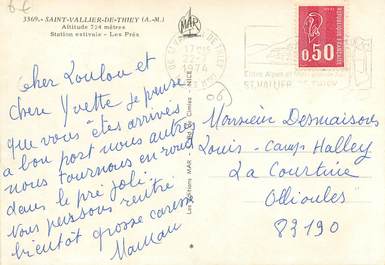 6f
3369. - SAINT-VALLIER-DE-THIEY (A.-M.)
Altitude 724 mètres
Station estivale - Les Prés
MAR
Cher Loulou et
chere Yvette je pense
que vous êtes arrivés
a bon port nous autres
nous tournons en rond
dans le pré joli
nous pensons rentré
bientôt grosse caresse
Maman
Les Editions MAR
de Cimiez - NICE
1974
ST VALLIER DE THIEY
0,50
REPUBLIQUE FRANÇAISE
06
Monsieur Desmaisons
Louis - Camp Halley
La Courtine
Ollioules
83190